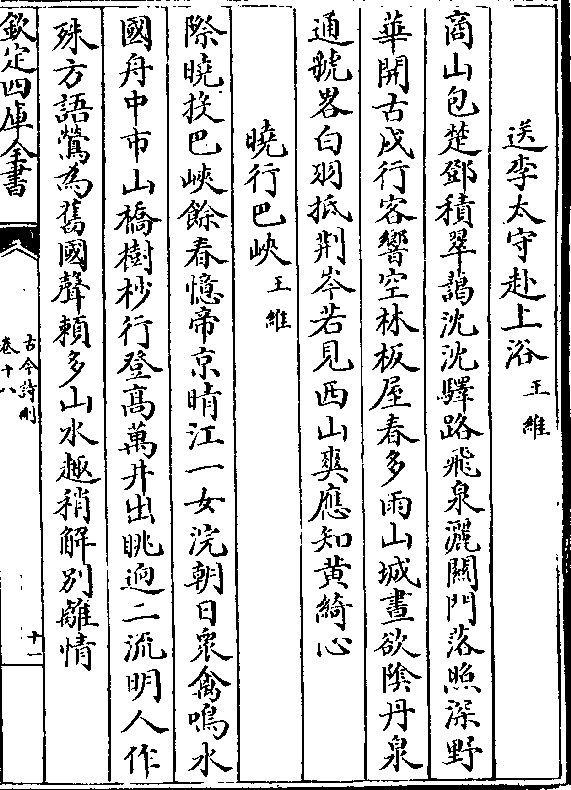 送李太守赴上浴 王維
商山包楚鄧積翠藹沈沈驛路飛泉灑闗門落照深野
華開古戍行客響空林板屋春多雨山城晝欲隂丹泉
通虢畧白羽抵荆岑若見西山爽應知黄綺心
曉行巴峽 王維
際曉投巴峽餘春憶帝京晴江一女浣朝日衆禽鳴水
國舟中市山橋樹杪行登髙萬井出眺迥二流明人作
殊方語鶯為舊國聲頼多山水趣稍解别離情
欽定四庫全書
古今詩刪
卷十八
十一